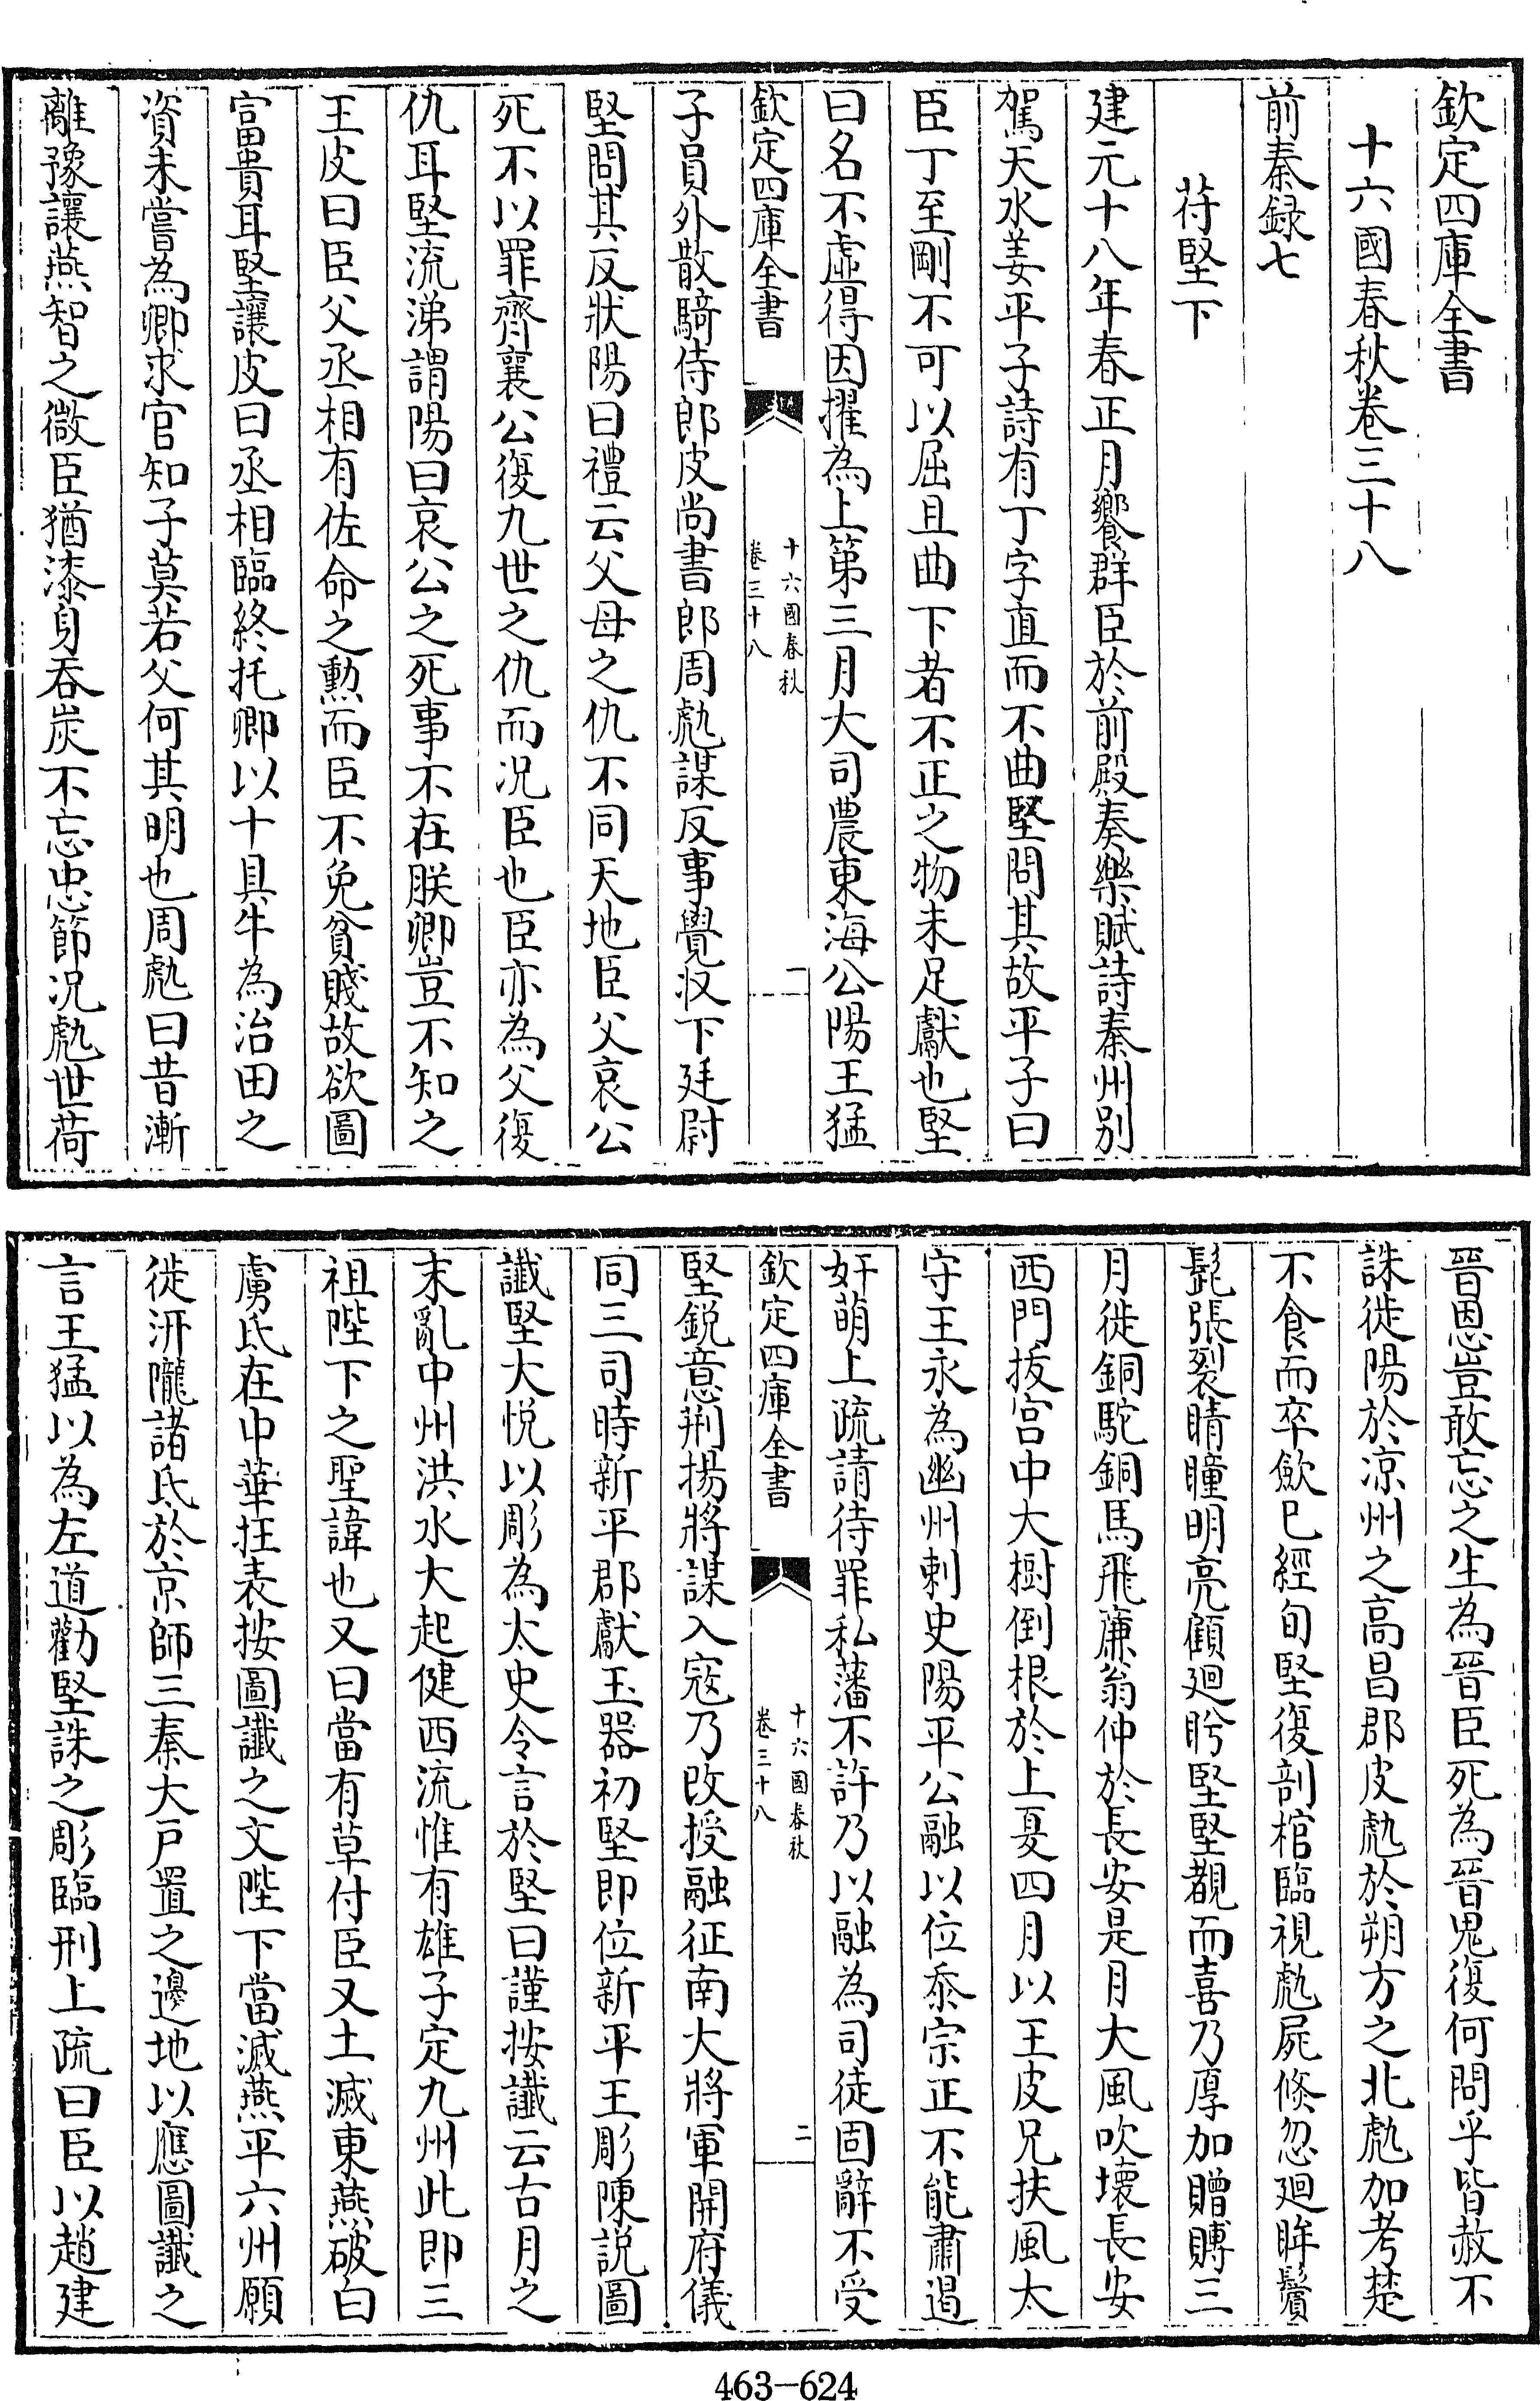 欽定四庫全書
十六國春秋卷三十八
前秦録七
苻堅下
建元十八年春正月饗群臣於前殿奏樂賦詩秦州别
駕天水姜平子詩有丁字直而不曲堅問其故平子曰
臣丁至剛不可以屈且曲下者不正之物未足獻也堅
曰名不虛得因擢為上第三月大司農東海公陽王猛
欽定四庫全書
十六國春秋
卷三十八
一
子員外散騎侍郎皮尚書郎周虓謀反事覺収下廷尉
堅問其反狀陽曰禮云父母之仇不同天地臣父哀公
死不以罪齊襄公復九世之仇而况臣也臣亦為父復
仇耳堅流涕謂陽曰哀公之死事不在朕卿豈不知之
王皮曰臣父丞相有佐命之勲而臣不免貧賤故欲圖
富貴耳堅讓皮曰丞相臨終托卿以十具牛為治田之
資未嘗為卿求官知子莫若父何其明也周虓曰昔漸
離豫讓燕智之微臣猶漆身吞炭不忘忠節况虓世荷
晉恩豈敢忘之生為晉臣死為晉鬼復何問乎皆赦不
誅徙陽於凉州之高昌郡皮虓於朔方之北虓加考楚
不食而卒歛已經旬堅復剖棺臨視虓屍倐忽廻眸鬚
髭張裂睛瞳明亮顧廻盻堅堅覩而喜乃厚加贈賻三
月徙銅駝銅馬飛廉翁仲於長安是月大風吹壞長安
西門拔宫中大樹倒根於上夏四月以王皮兄扶風太
守王永為幽州刺史陽平公融以位忝宗正不能肅遏
奸萌上疏請待罪私藩不許乃以融為司徒固辭不受
欽定四庫全書
十六國春秋
卷三十八
二
堅鋭意荆揚將謀入寇乃改授融征南大將軍開府儀
同三司時新平郡獻玉器初堅即位新平王彫陳説圖
讖堅大悦以彫為太史令言於堅曰謹按讖云古月之
末亂中州洪水大起健西流惟有雄子定九州此即三
祖陛下之聖諱也又曰當有草付臣又土滅東燕破白
虜氐在中華在表按圖讖之文陛下當滅燕平六州願
徙汧隴諸氐於京師三秦大戸置之邊地以應圖讖之
言王猛以為左道勸堅誅之彫臨刑上疏曰臣以趙建
463-624